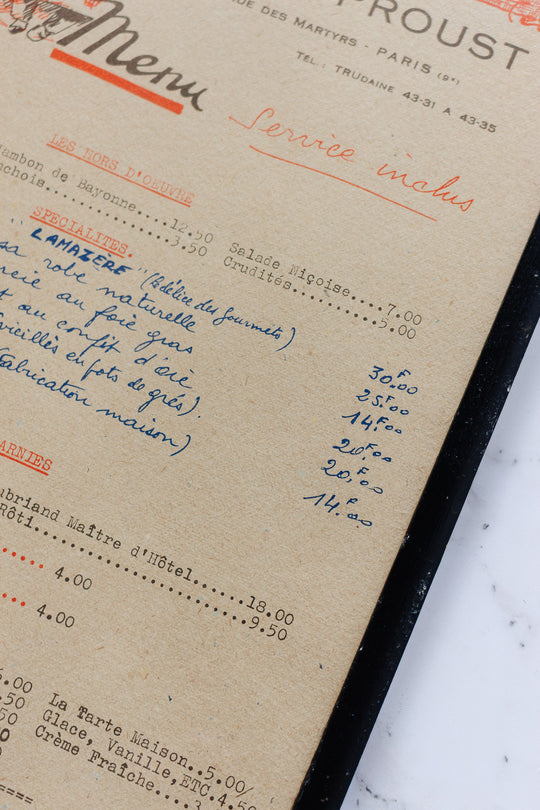 PROUST
RUE DES MARTYRS - PARIS (9e)
TÉL.: TRUDAINE 43-31 A 43-35
Menu
Service inclus
LES HORS D'OEUVRE
Jambon de Bayonne....12.50
nchois...............3.50
Salade Niçoise....7.00
Crudités..........5.00
SPECIALITES.
"LAMAZÈRE" (Le délice des Gourmets)
sa robe naturelle 30F00
au foie gras 25F00
au confit d'oie 14F00
vieillies en pots de grés). 20F00
20F00
Fabrication maison) 14F00
ARNIES
ubriand Maître d'Hôtel......18.00
Rôti........................9.50
4.00
4.00
5.00
.50
50
0
La Tarte Maison..5.00/
Glace, Vanille, ETC.4.50
Crème Fraîche....3
====